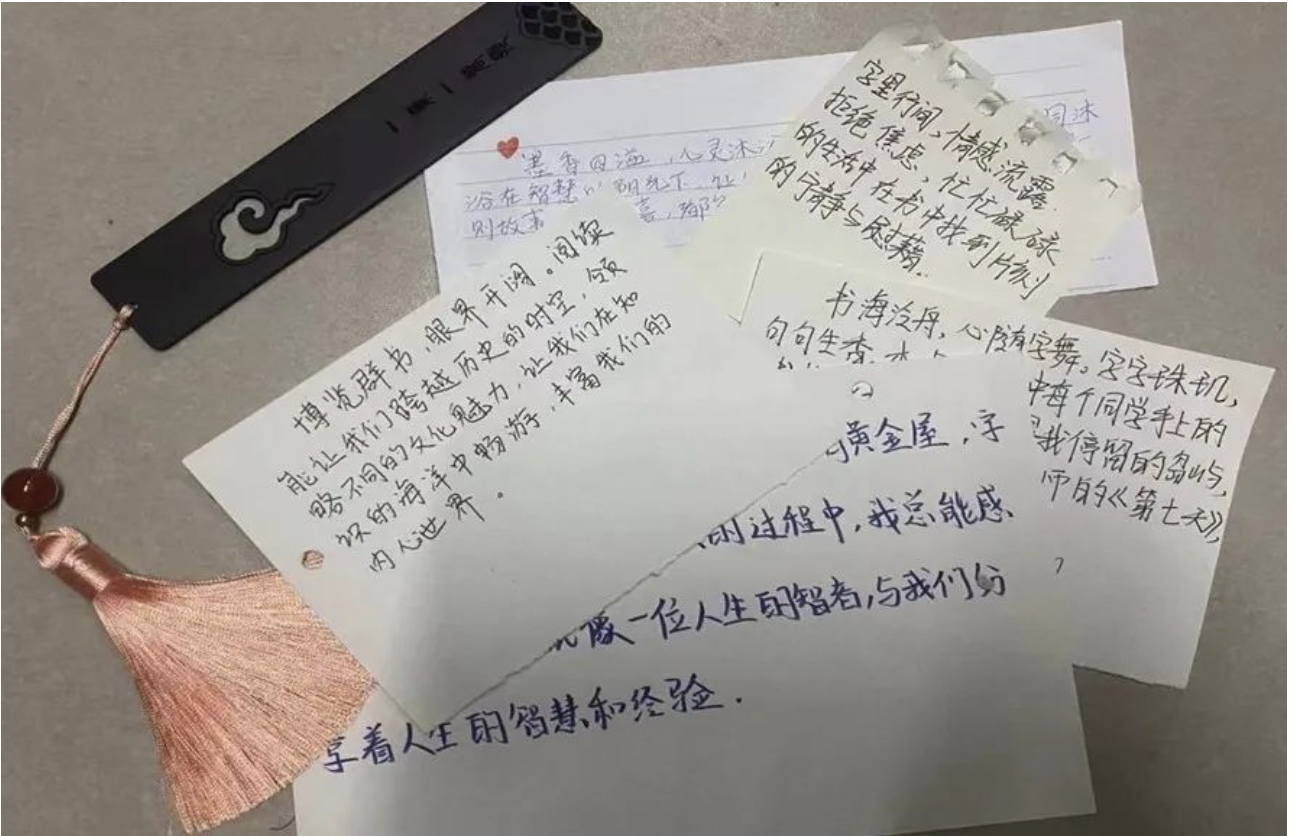 墨香四溢,心灵沐
同沐
浴在智慧
则故事
字里行间,情感流露.
拒绝焦虑,忙忙碌碌
的生活中在书中找到片刻
的宁静与慰藉.
博览群书,眼界开阔。阅读
能让我们跨越历史的时空,领
略不同的文化魅力,让我们在知
识的海洋中畅游,丰富我们的
内心世界。
书海泛舟,心随字舞。字字珠玑,
句句生香,
中每个同学手上的
我停留的岛屿,
的《第七天》,
黄金屋,字
的过程中,我总能感
像一位人生的智者,与我们分
享着人生的智慧和经验.